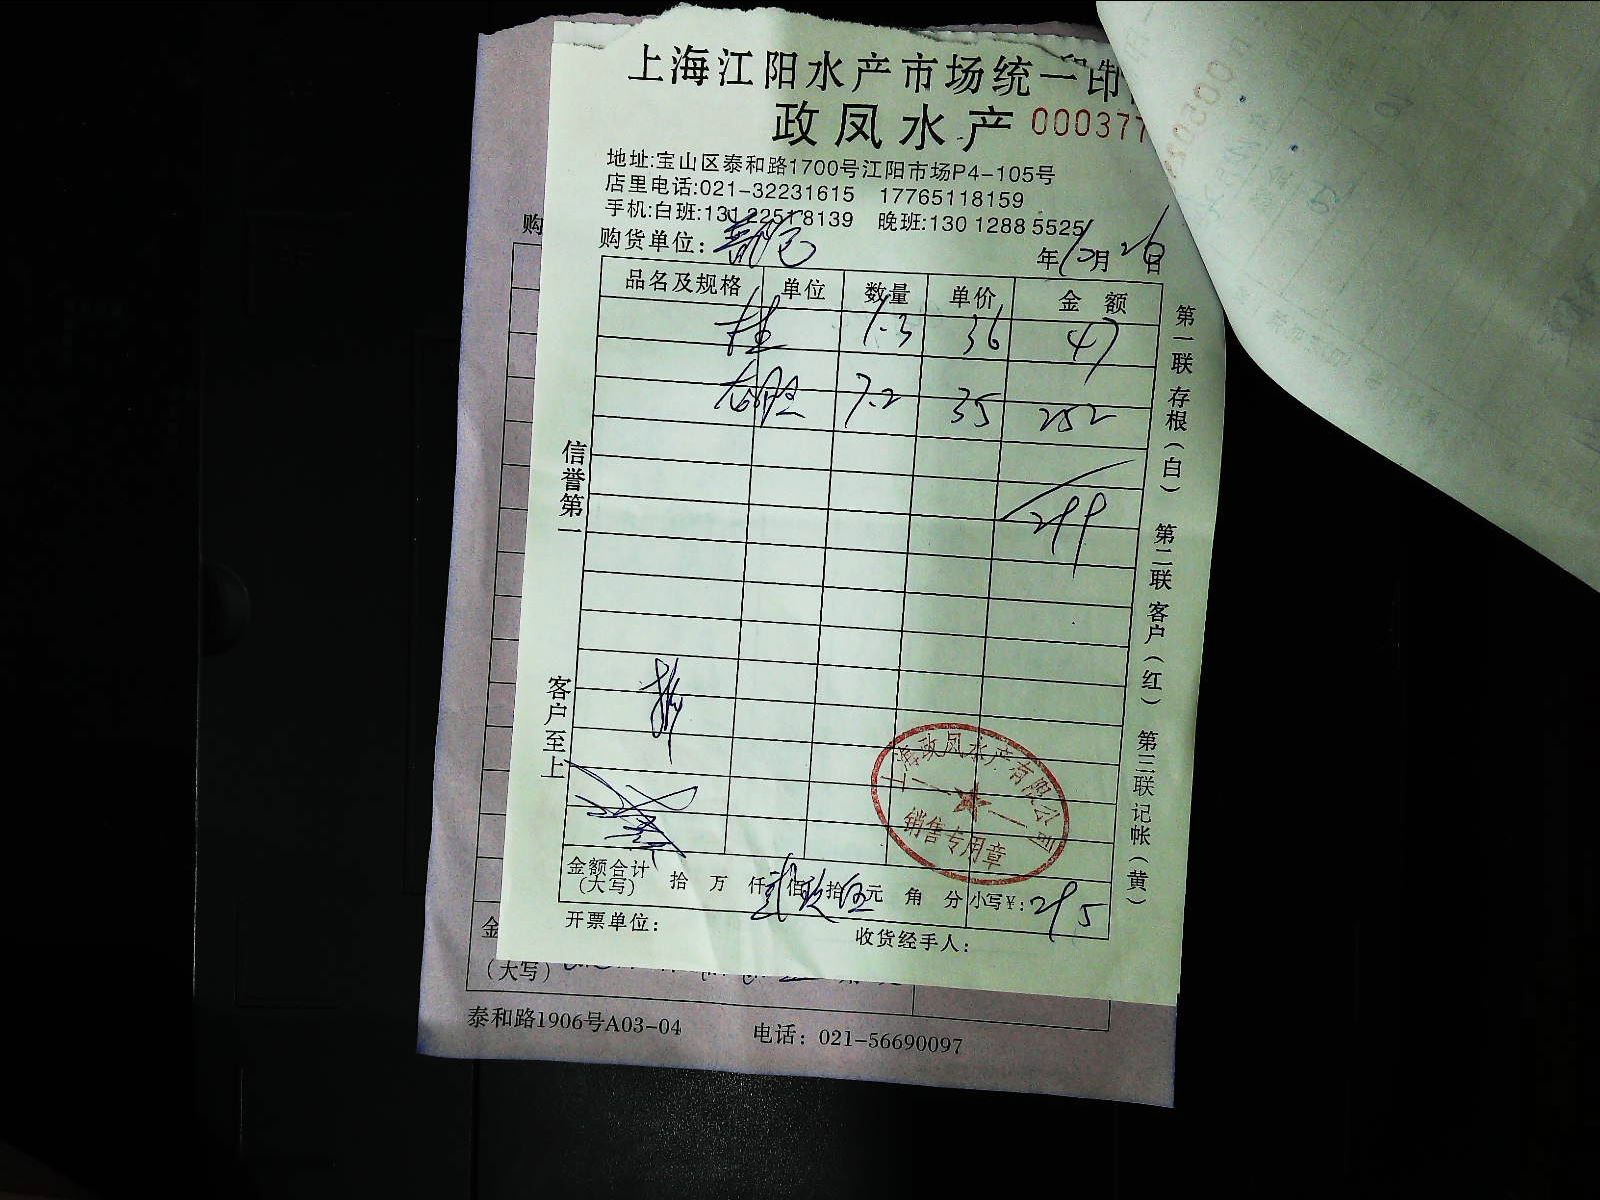 上海江阳水产市场统一印制
政凤水产 000377
地址:宝山区泰和路1700号江阳市场P4-105号
店里电话:021-32231615 17765118159
手机:白班:131 2251 8139 晚班:130 1288 5525
购货单位:
年12月26日
品名及规格 单位 数量 单价 金额
桂 1.3 36 47
7.2 35 252
299
信誉第一
客户至上
第一联存根(白) 第二联客户(红) 第三联记帐(黄)
上海政凤水产有限公司
销售专用章
金额合计(大写) 拾 万 仟贰佰玖拾伍元 角 分 小写¥:295
开票单位: 收货经手人:
购
金
(大写)
泰和路1906号A03-04 电话:021-56690097